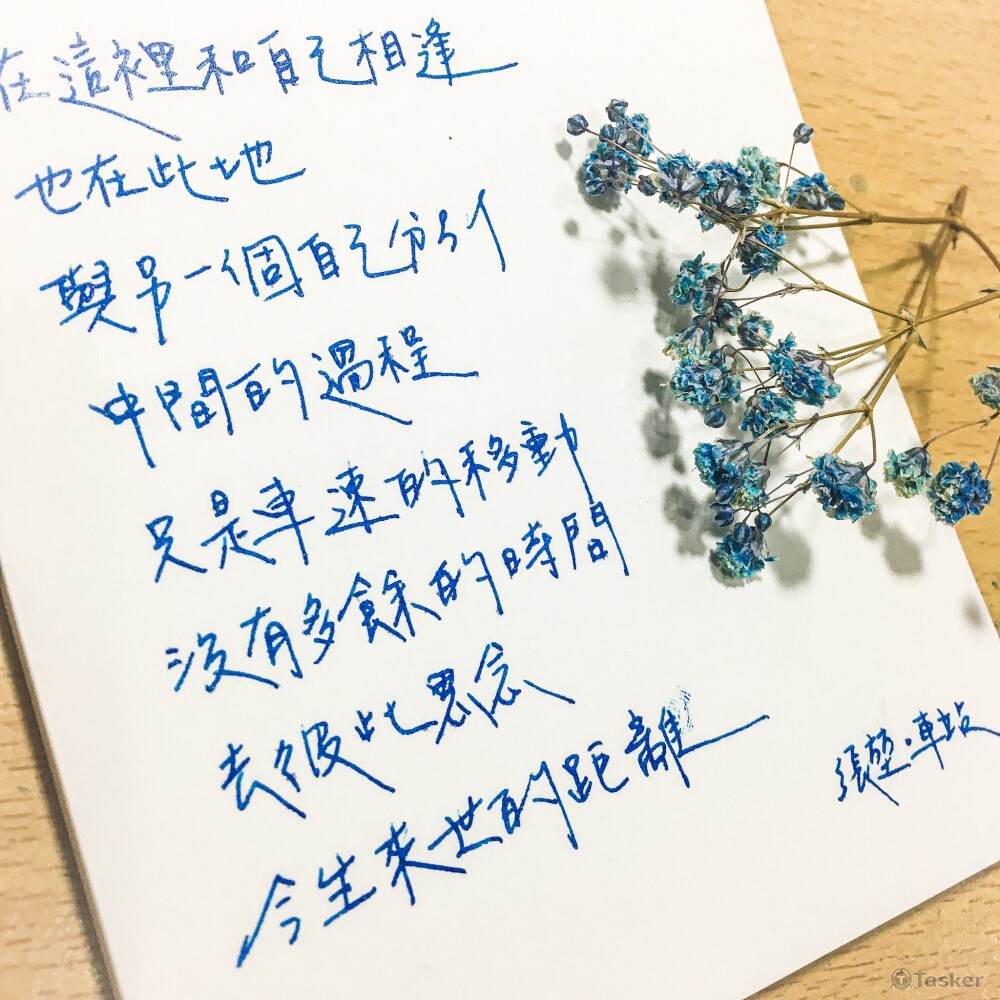 在這裡和自己相逢
也在此地
與另一個自己分別
中間的過程
只是車速的移動
沒有多餘的時間
去彼此思念
今生來世的距離
張堃·車站
Tasker